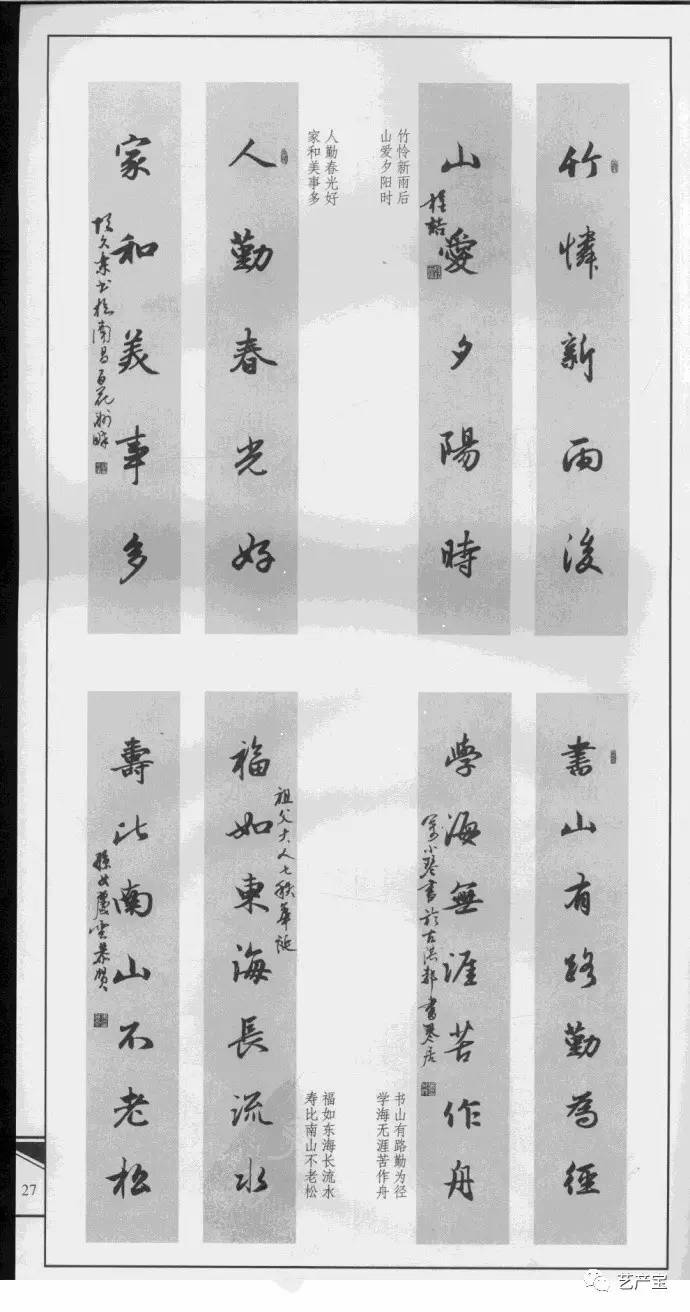 竹憐新雨後
山愛夕陽時
竹怜新雨后
山爱夕阳时
人勤春光好
家和美事多
人勤春光好
家和美事多
書山有路勤為徑
學海無涯苦作舟
书山有路勤为径
学海无涯苦作舟
福如東海長流水
祖父大人七秩華誕
壽比南山不老松
孫女麗雲恭賀
福如东海长流水
寿比南山不老松
27
艺产宝